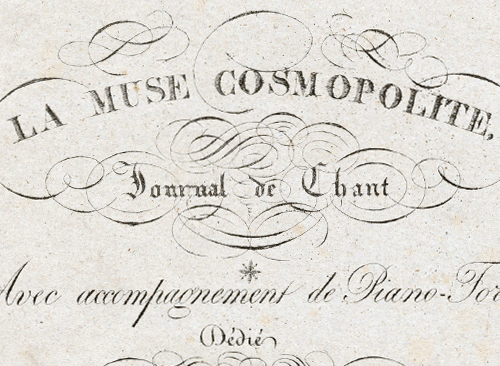 LA MUSE COSMOPOLITE,
Journal de Chant
Avec accompagnement de Piano-For
Dédié